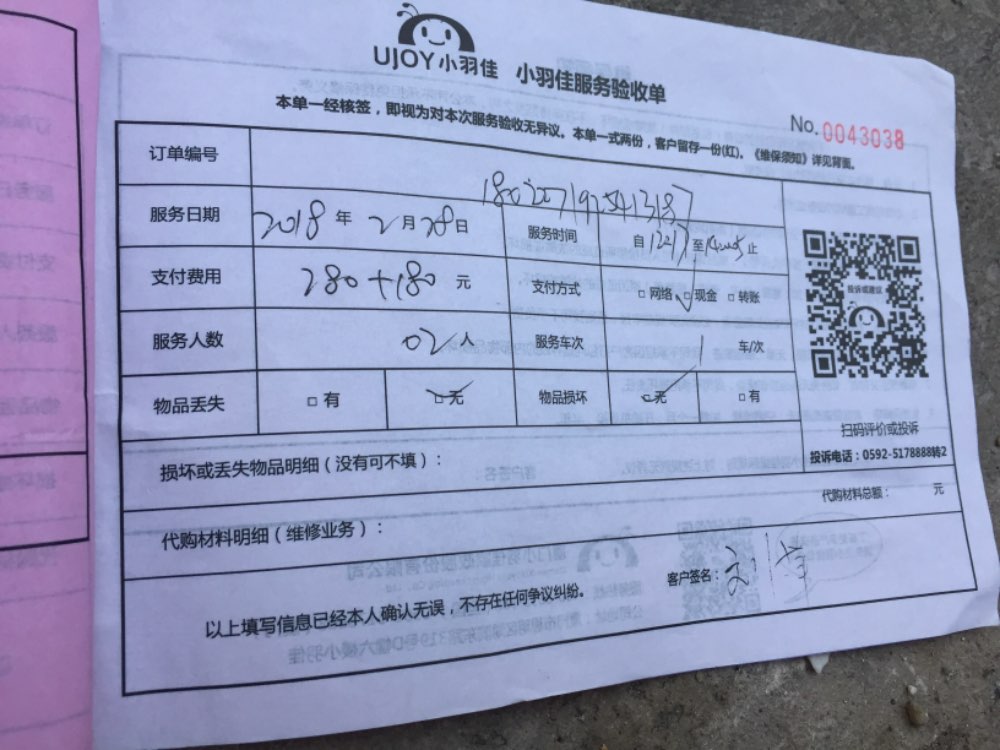 UJOY小羽佳 小羽佳服务验收单
本单一经核签，即视为对本次服务验收无异议。本单一式两份，客户留存一份(红)。《维保须知》详见背面。
No.0043038
订单编号
服务日期 2018年2月28日 服务时间 自 至 止
支付费用 280+180元 支付方式 □网络 □现金 □转账
服务人数 02人 服务车次 1 车/次
物品丢失 □有 □无 物品损坏 □无 □有
投诉或建议
扫码评价或投诉
投诉电话：0592-5178888转2
损坏或丢失物品明细（没有可不填）：
代购材料明细（维修业务）： 代购材料总额： 元
以上填写信息已经本人确认无误，不存在任何争议纠纷。 客户签名：